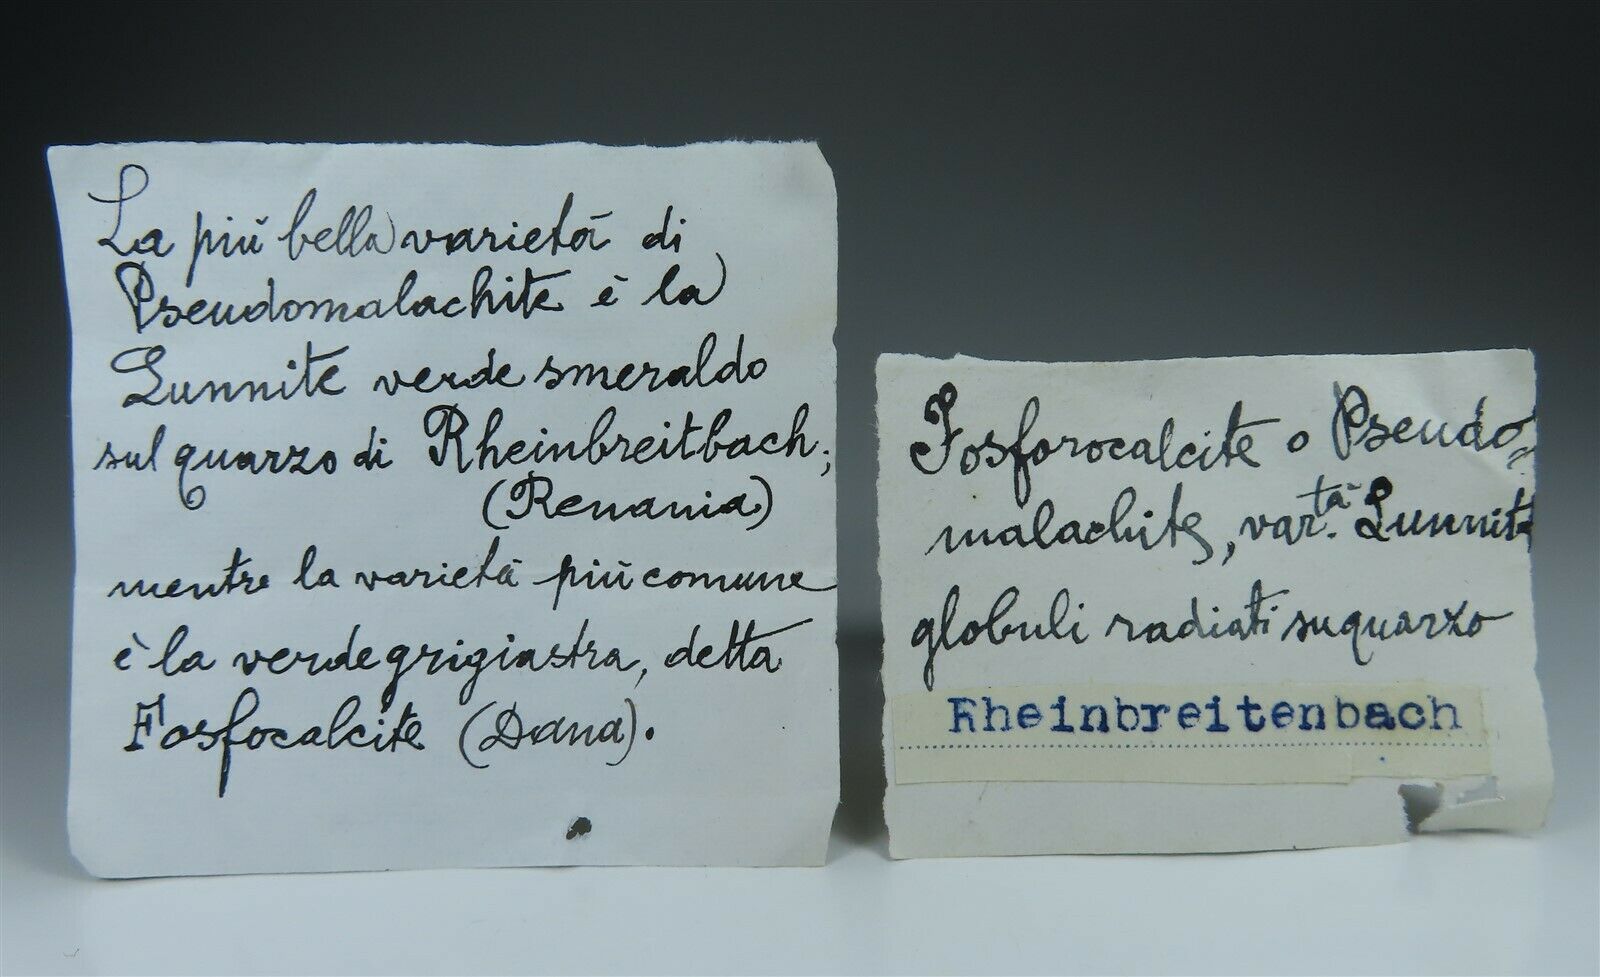 La più bella varietà di
Pseudomalachite è la
Lunnite verde smeraldo
sul quarzo di Rheinbreitbach;
(Renania)
mentre la varietà più comune
è la verde grigiastra, detta
Fosfocalcite (Dana).
Fosforocalcite o Pseudo=
malachite, var.tà Lunnite
globuli radiati su quarzo
Rheinbreitenbach